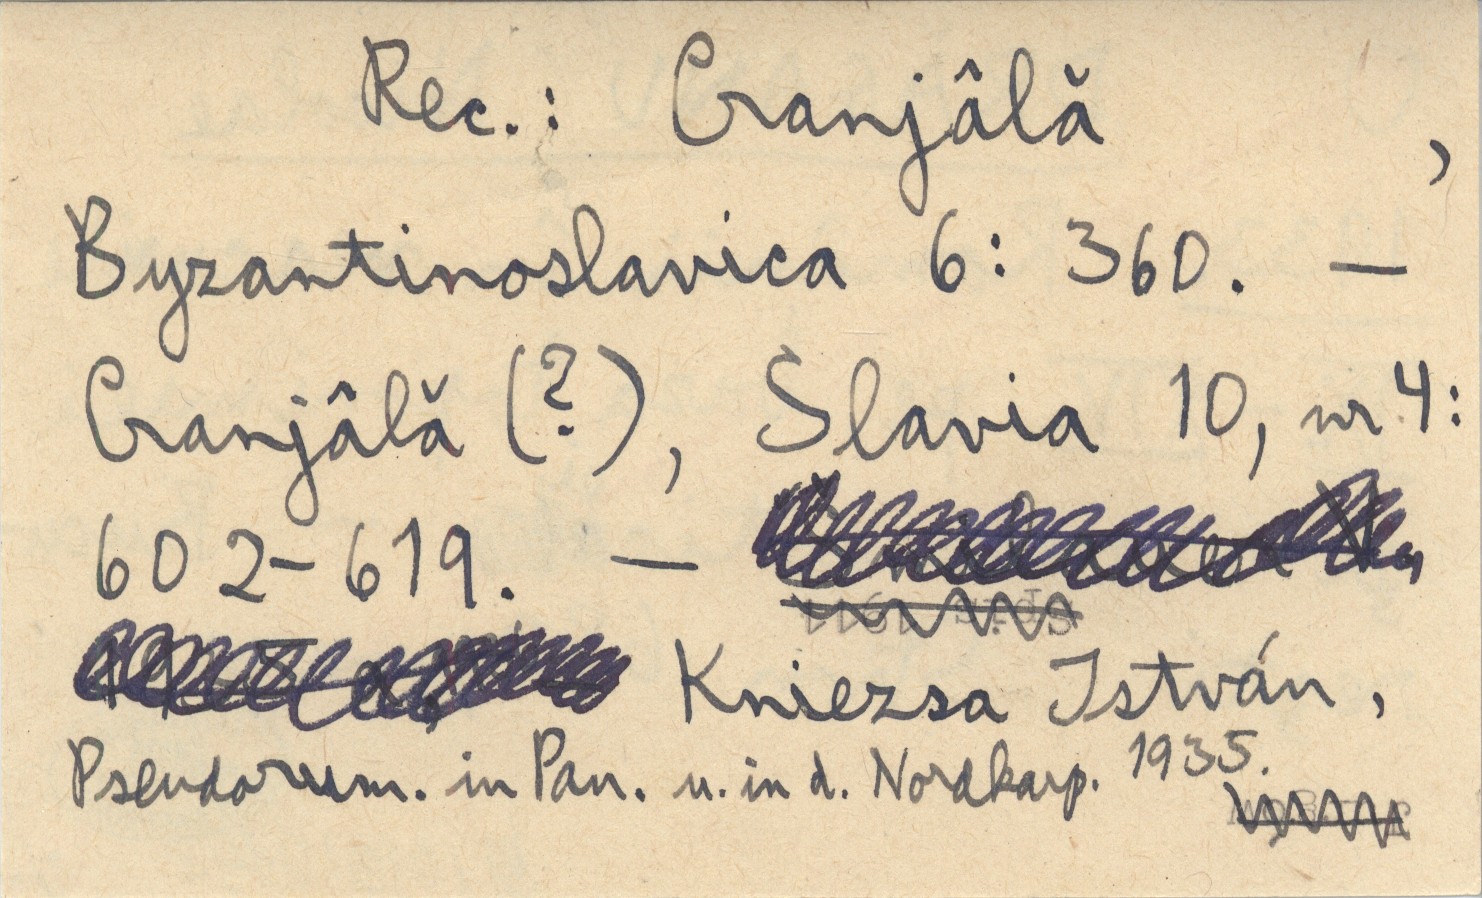 Rec.: Cranjâlă ,
Byzantinoslavica 6: 360. —
Cranjâlă (?), Slavia 10, nr 4:
602-619. —
Kniezsa István,
Pseudorum. in Pan. u. in d. Nordkarp. 1935.